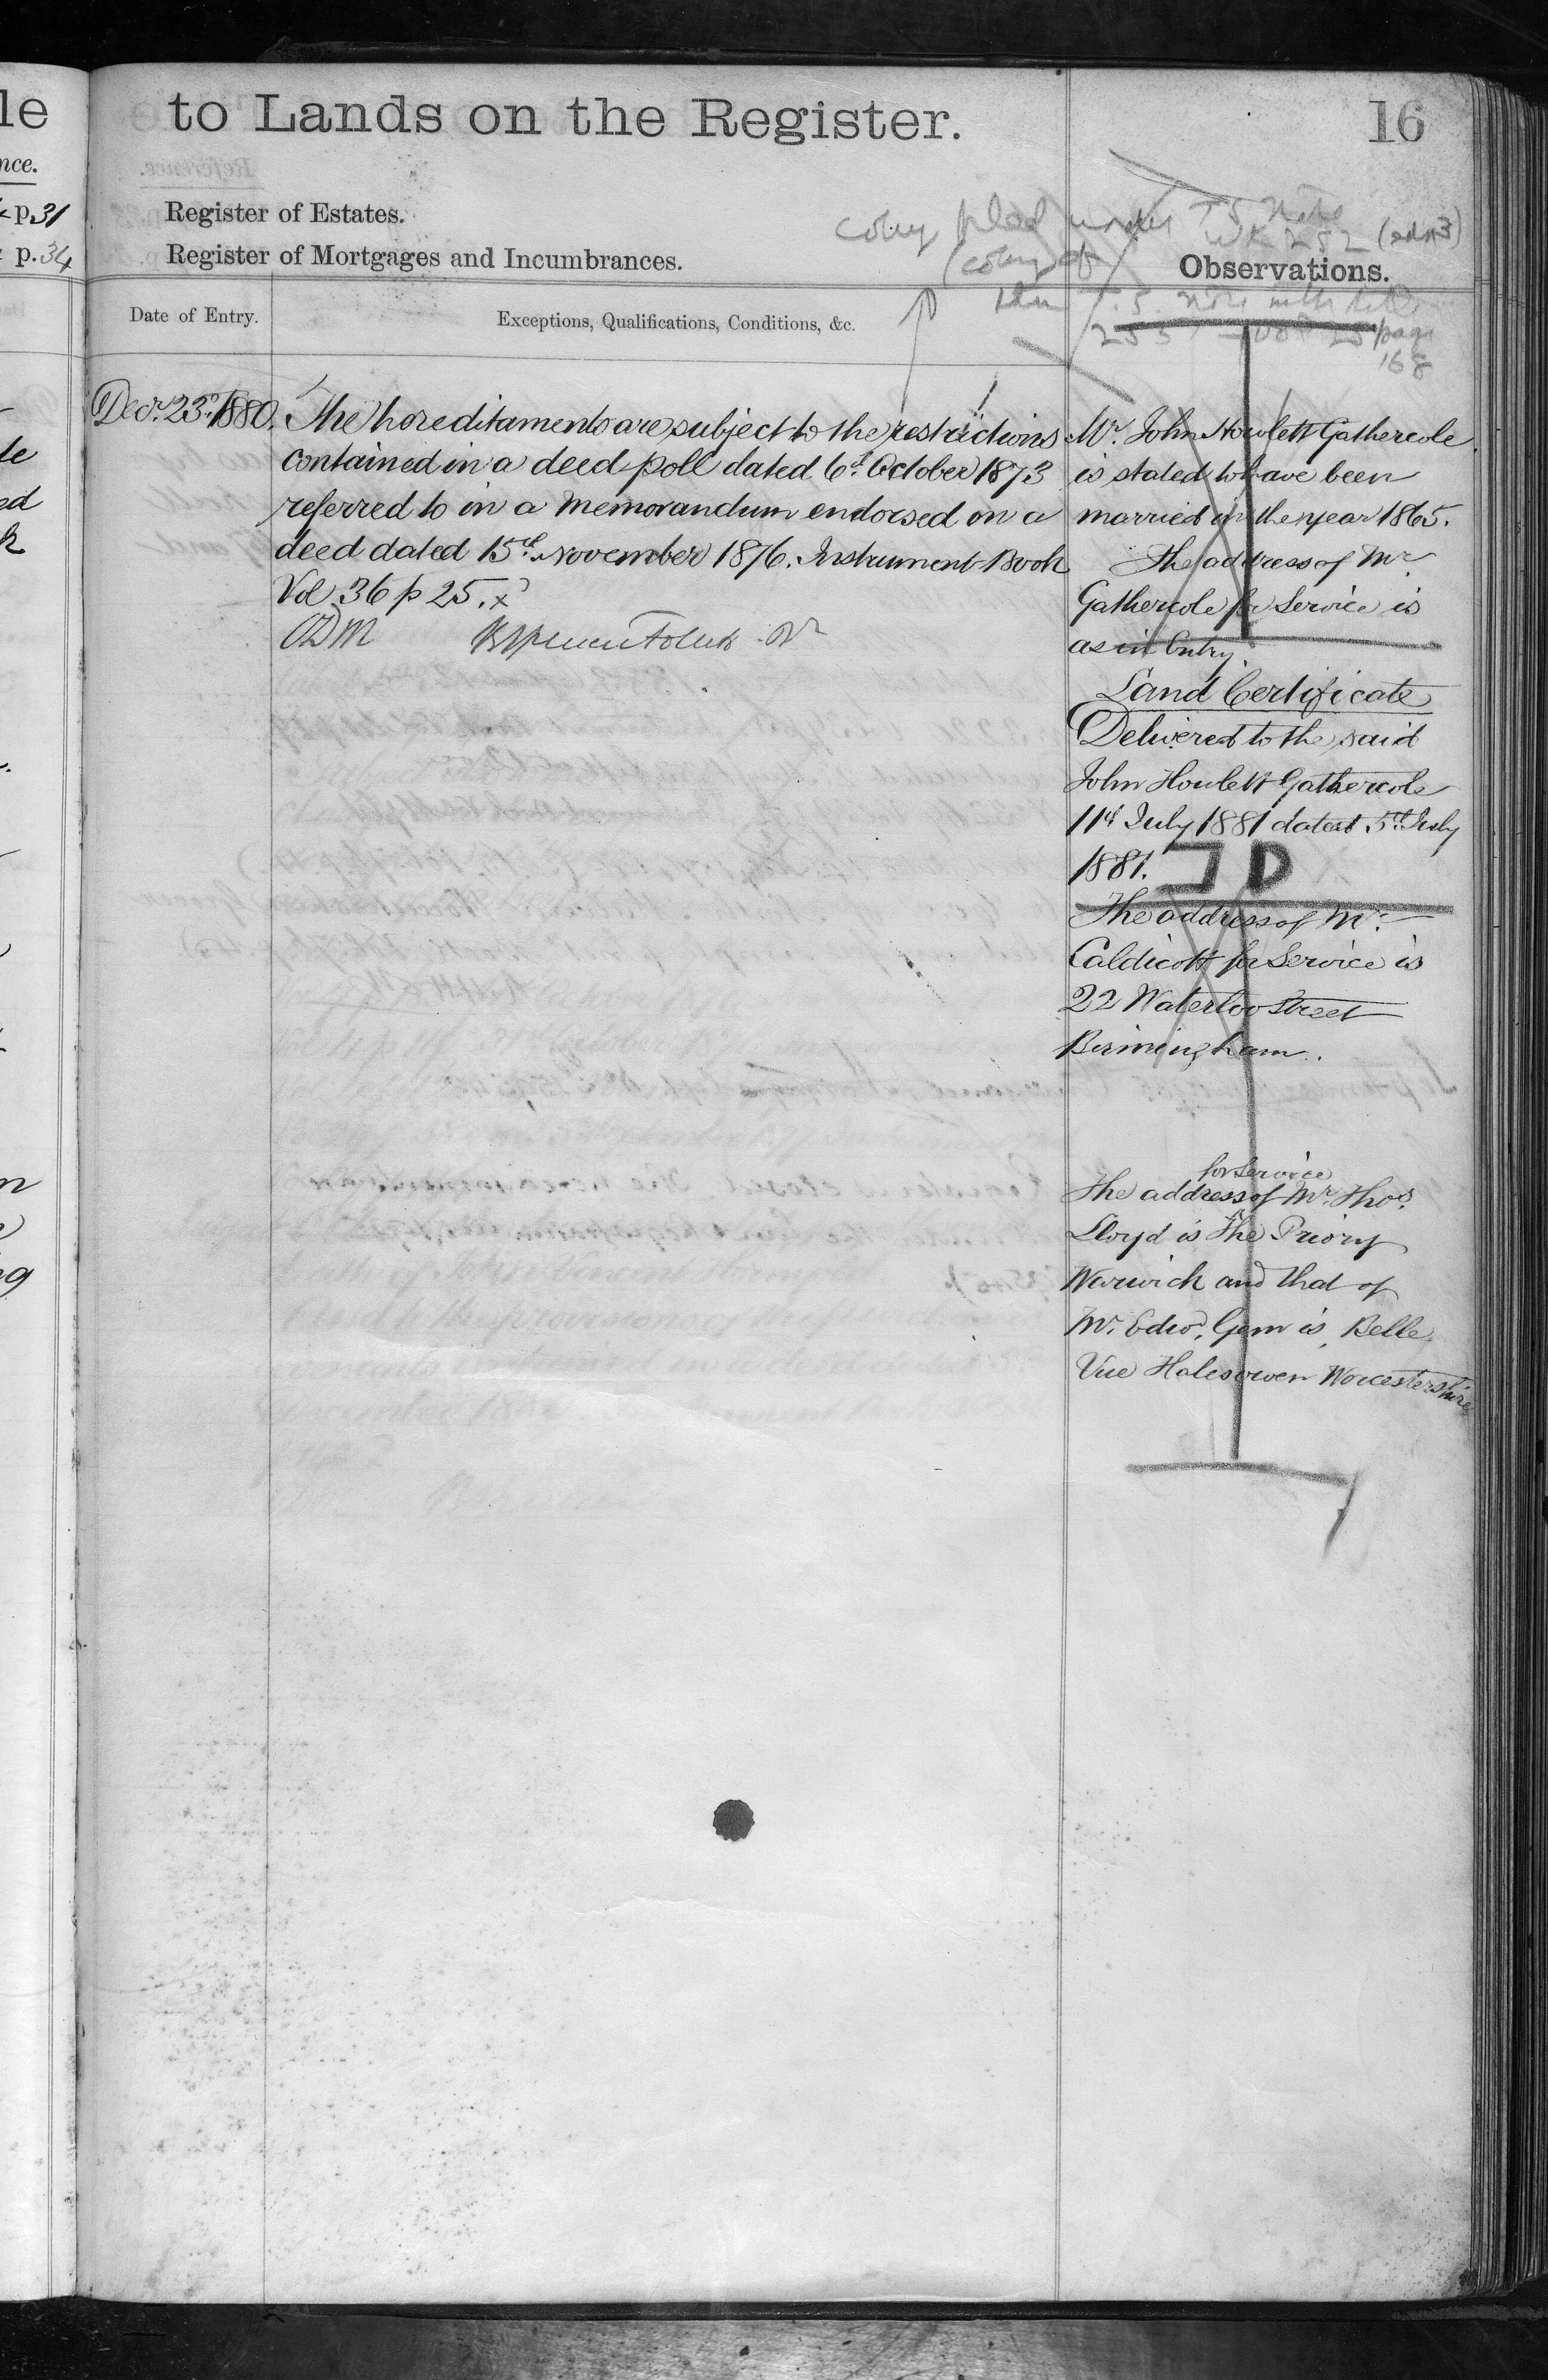 to Lands on the Register.
16
le
nce.
p. 31
p. 34
Register of Estates.
Register of Mortgages and Incumbrances.
copy filed under T S Note
WK 252 (edn 3)
(copy of
Observations.
Date of Entry.
Exceptions, Qualifications, Conditions, &c.
page
168
Decr. 23rd. 1880.
The hereditaments are subject to the restrictions
contained in a deed poll dated 6th. October 1873
referred to in a memorandum endorsed on a
deed dated 15th. November 1876. Instrument Book
Vol 36 p 25. x
ODM
Mr. John Howlett Gathercole
is stated to have been
married in the year 1865.
The address of Mr.
Gathercole for Service is
as in Entry.
Land Certificate
Delivered to the said
John Howlett Gathercole
11th July 1881 dated 5th July
1881.
The address of Mr.
Caldicott for Service is
22 Waterloo Street
Birmingham.
for Service
The address of Mr. Thos.
Lloyd is The Priory
Warwick and that of
Mr. Edwd. Gem is Belle
Vue Halesowen Worcestershire